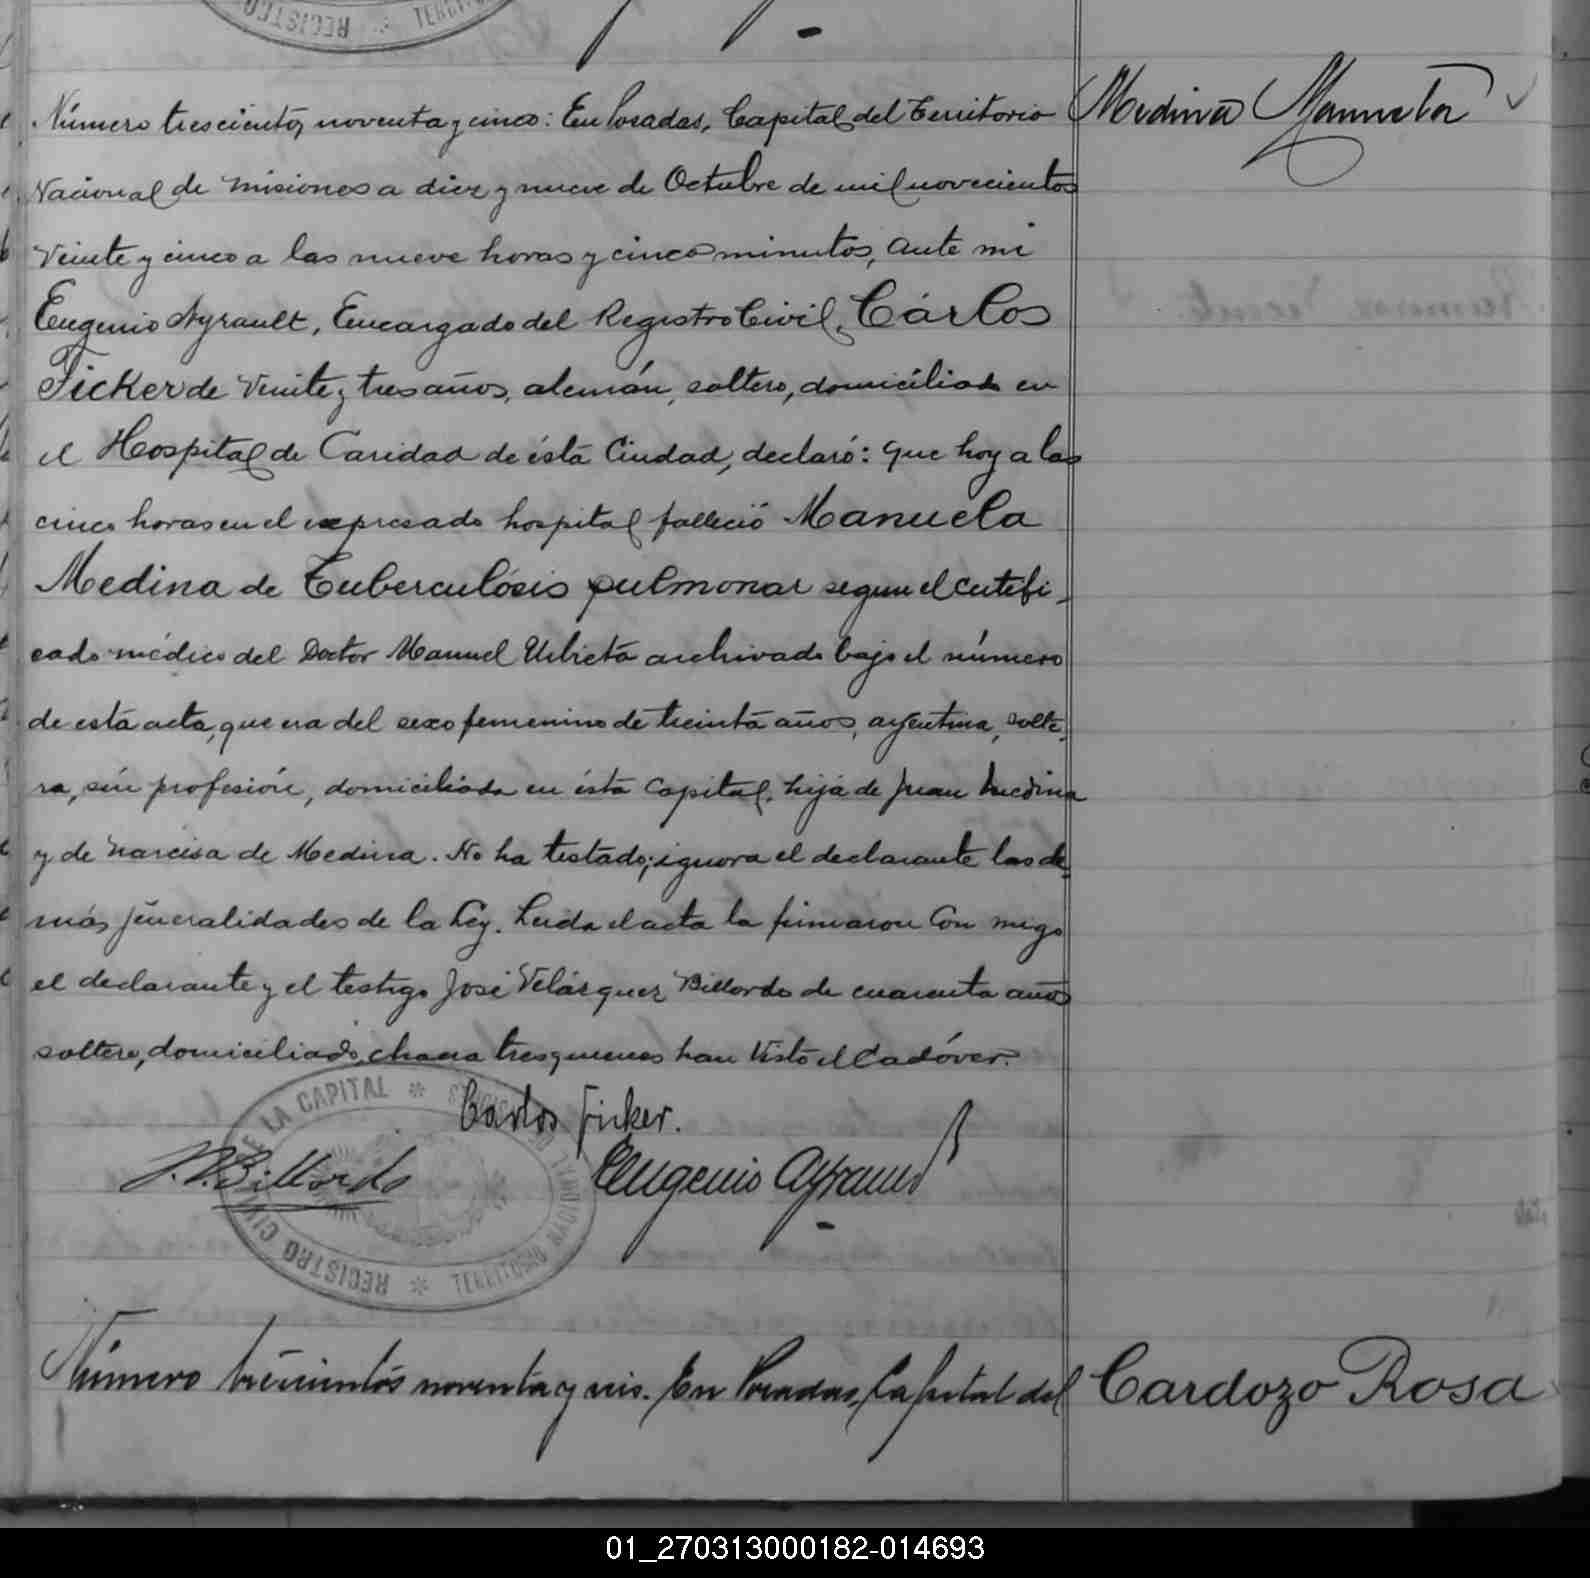 Número trescientos noventa y cinco: En Posadas, Capital del Territorio
Medina Manuela
Nacional de Misiones a diez y nueve de Octubre de mil novecientos
veinte y cinco a las nueve horas y cinco minutos, ante mi
Eugenio Ayrault, Encargado del Registro Civil, Cárlos
Ficker de veinte y tres años, alemán, soltero, domiciliado en
el Hospital de Caridad de ésta Ciudad, declaró: que hoy a las
cinco horas en el expresado hospital falleció Manuela
Medina de Tuberculósis pulmonar segun el certifi-
cado médico del Doctor Manuel Urbieta archivado bajo el número
de esta acta, que era del sexo femenino de treinta años, argentina, solte-
ra, sin profesión, domiciliada en ésta Capital, hija de Juan Medina
y de Narcisa de Medina. No ha testado; ignora el declarante las de-
más jeneralidades de la Ley. Leida el acta la firmaron con migo
el declarante y el testigo José Velásquez Billordo de cuarenta años
soltero, domiciliado chacra tres quienes han visto el Cadáver.
Carlos Ficker.
J. V. Billordo
Eugenio Ayrault
REGISTRO CIVIL DE LA CAPITAL * TERRITORIO NACIONAL DE MISIONES *
Número trescientos noventa y seis. En Posadas, Capital del
Cardozo Rosa
01_270313000182-014693